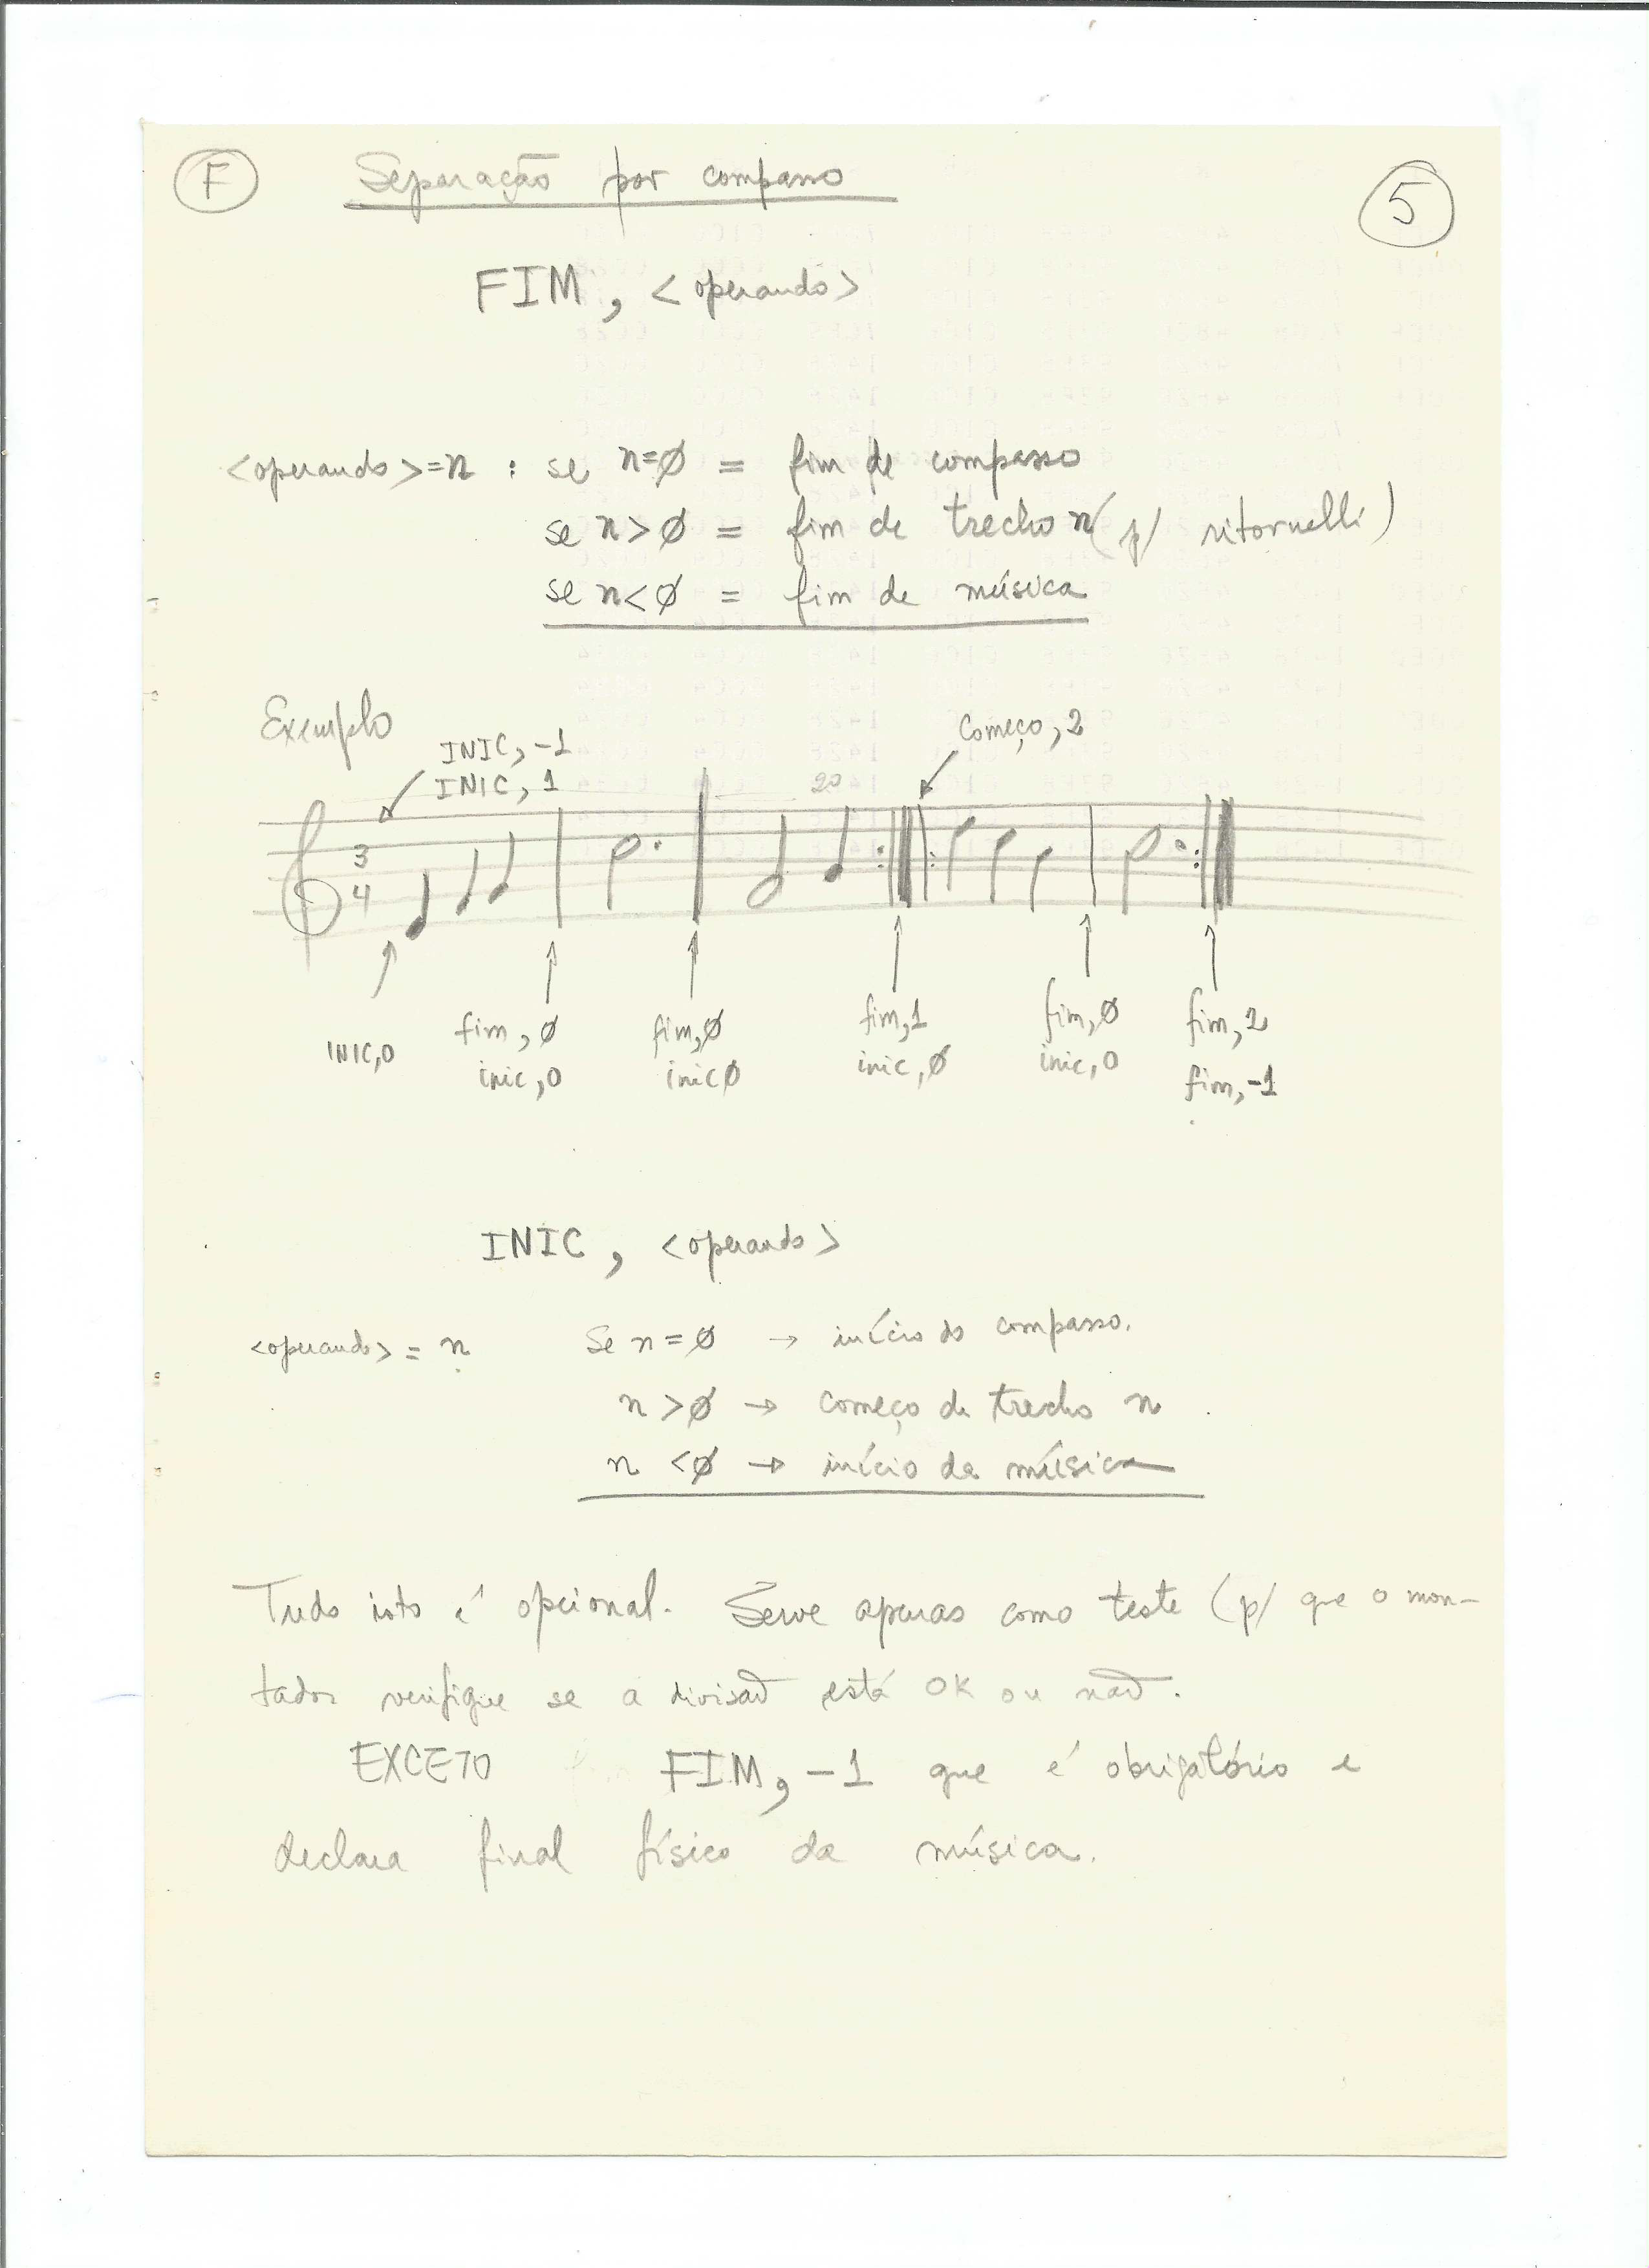 F Separação por compasso 5
FIM, <operando>
<operando>=n : se n=Ø = fim de compasso
se n>Ø = fim de trecho n (p/ ritornelli)
se n<Ø = fim de música
Exemplo
INIC, -1
INIC, 1
Começo, 2
20
3
4
INIC,0
fim, Ø
inic, 0
fim,Ø
inicØ
fim,1
inic,Ø
fim,Ø
inic,0
fim, 2
fim,-1
INIC, <operando>
<operando> = n Se n=Ø → início do compasso.
n >Ø → começo de trecho n
n <Ø → início da música
Tudo isto é opcional. Serve apenas como teste (p/ que o mon-
tador verifique se a divisão está OK ou não.
EXCETO FIM, -1 que é obrigatório e
declara final físico da música.